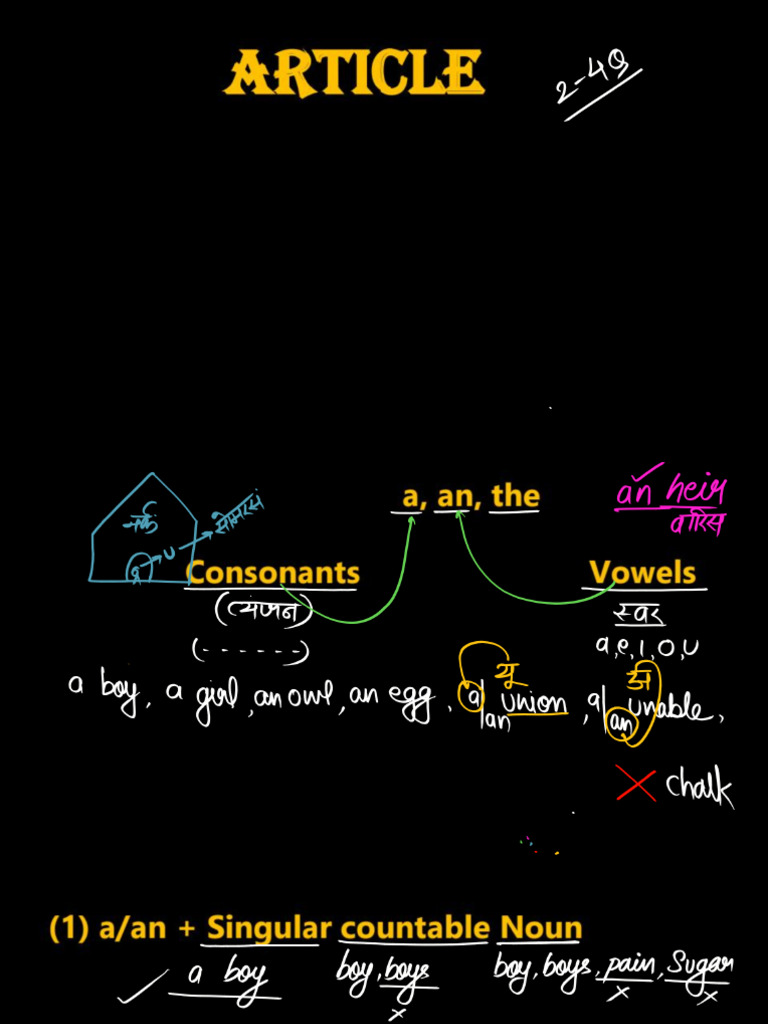 ARTICLE
2-4Q
a, an, the
an heir
वारिस
नर्क
सोमरस
U
Consonants
Vowels
(व्यंजन)
स्वर
(------)
a, e, i, o, u
यू
अ
a boy, a girl, an owl, an egg, a/an union, a/an unable,
X chalk
(1) a/an + Singular countable Noun
✓ a boy
boy, boys
boy, boys, pain, Sugar
x
x
x